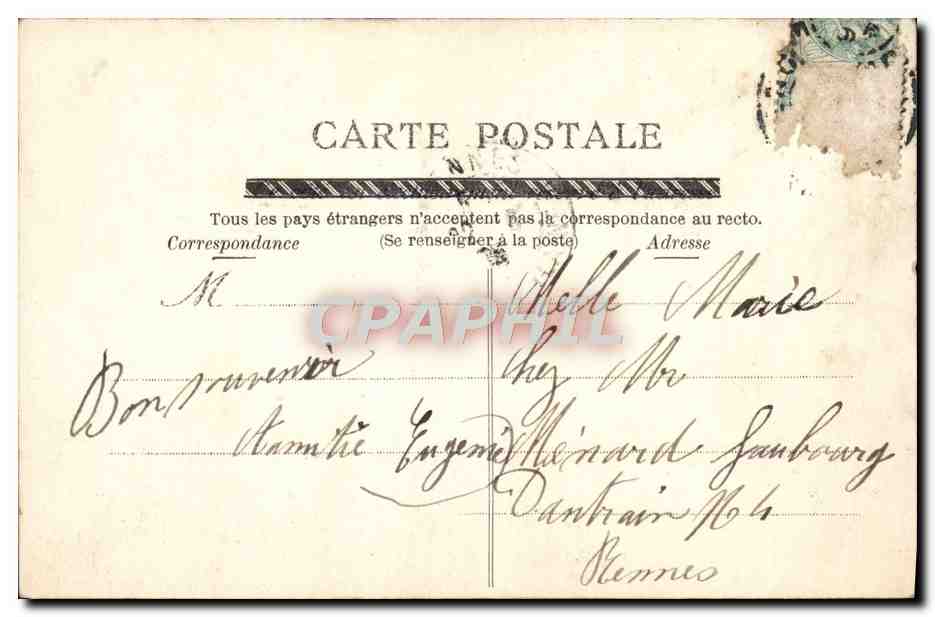 CARTE POSTALE
Tous les pays étrangers n'acceptent pas la correspondance au recto.
(Se renseigner à la poste)
Correspondance
Adresse
M
Bon souvenir
damitié Eugenie
Melle Marie
chez Mr
Ménard faubourg
Dantrain N 4
Rennes
CPAPHIL